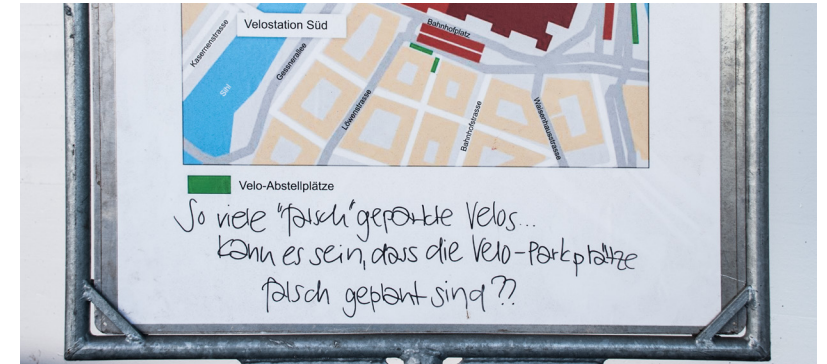 Velostation Süd
Bahnhofplatz
Kasernenstrasse
Gessnerallee
Sihl
Löwenstrasse
Bahnhofstrasse
Waisenhausstrasse
Velo-Abstellplätze
So viele "falsch" geparkte Velos...
Kann es sein, dass die Velo-Parkplätze
falsch geplant sind??